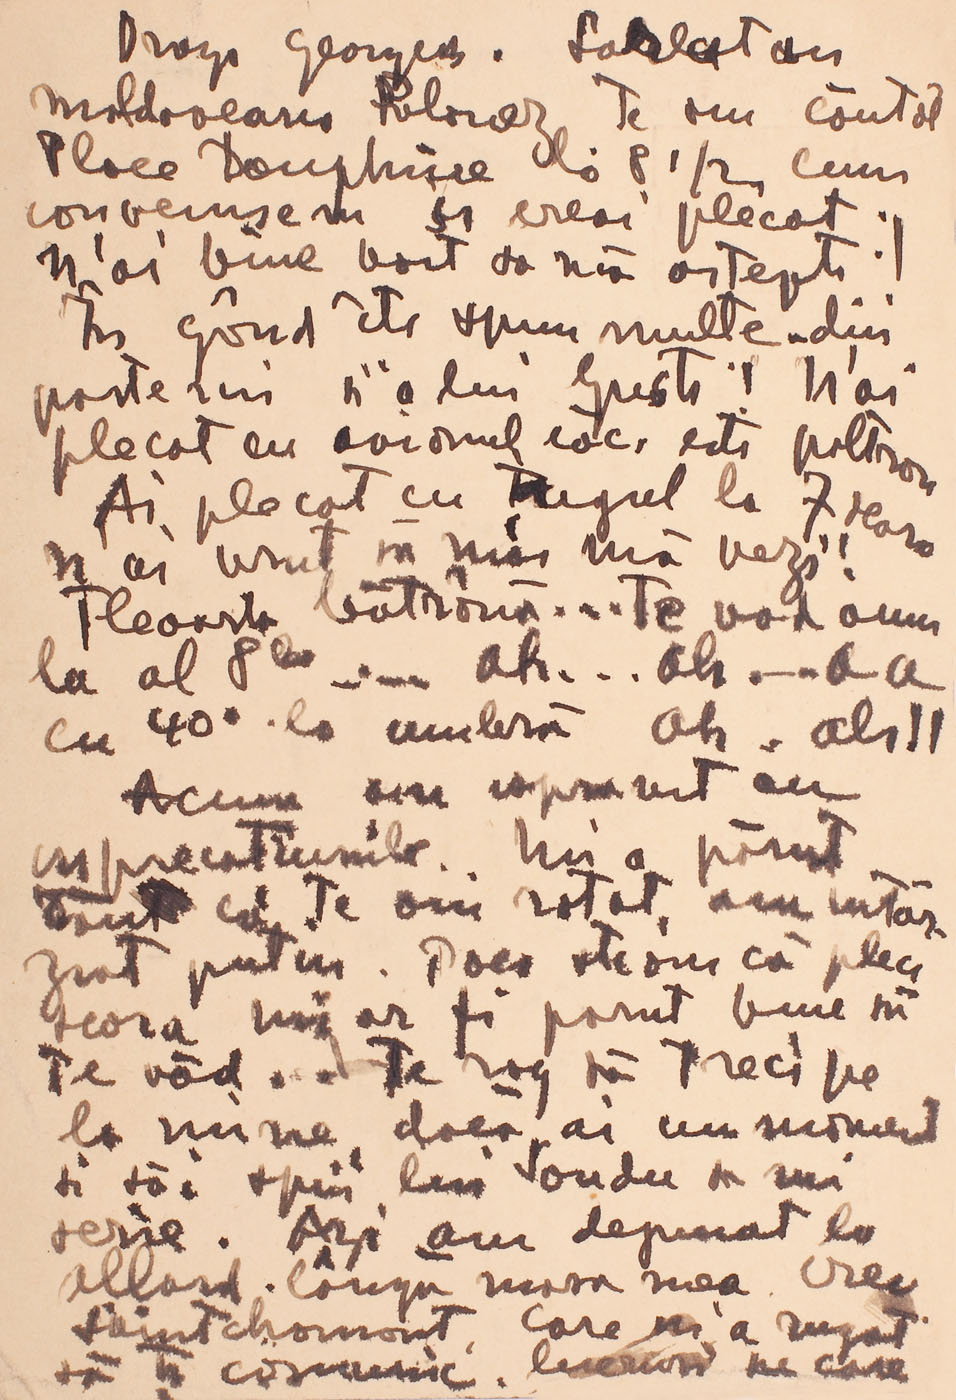 Dragi Georges. Sarlatan
moldoveano Polonez Te am căutat
Place Dauphine la 8 1/2, cum
convenisem și ereai plecat.
N'ai bine voit sa mă aștepți!
În gând îți spun multe din
parte mi și a lui Gusti! N'ai
plecat cu avionul căci ești poltron
Ai plecat cu trenul la 7 seara
n'ai vrut să mai mă vezi!
Fleoarta bătrână... Te văd acum
la al 8lea .... Ah... Ah .... a a
cu 40° la umbră Ah. ah!!
Acum am isprăvit cu
imprecațiunile. Mi a părut
rău că te am ratat, am întâr
ziat puțin. Daca știam că pleci
seara mi ar fi parut bine să
te văd... Te rog să treci pe
la mine, dacă ai un moment
și să i spui lui Sandu sa mi
scrie. Azi am dejunat la
allard. lânga masa mea era
Saintchamont, care m'a rugat
să ți comunic. lucruri pe care